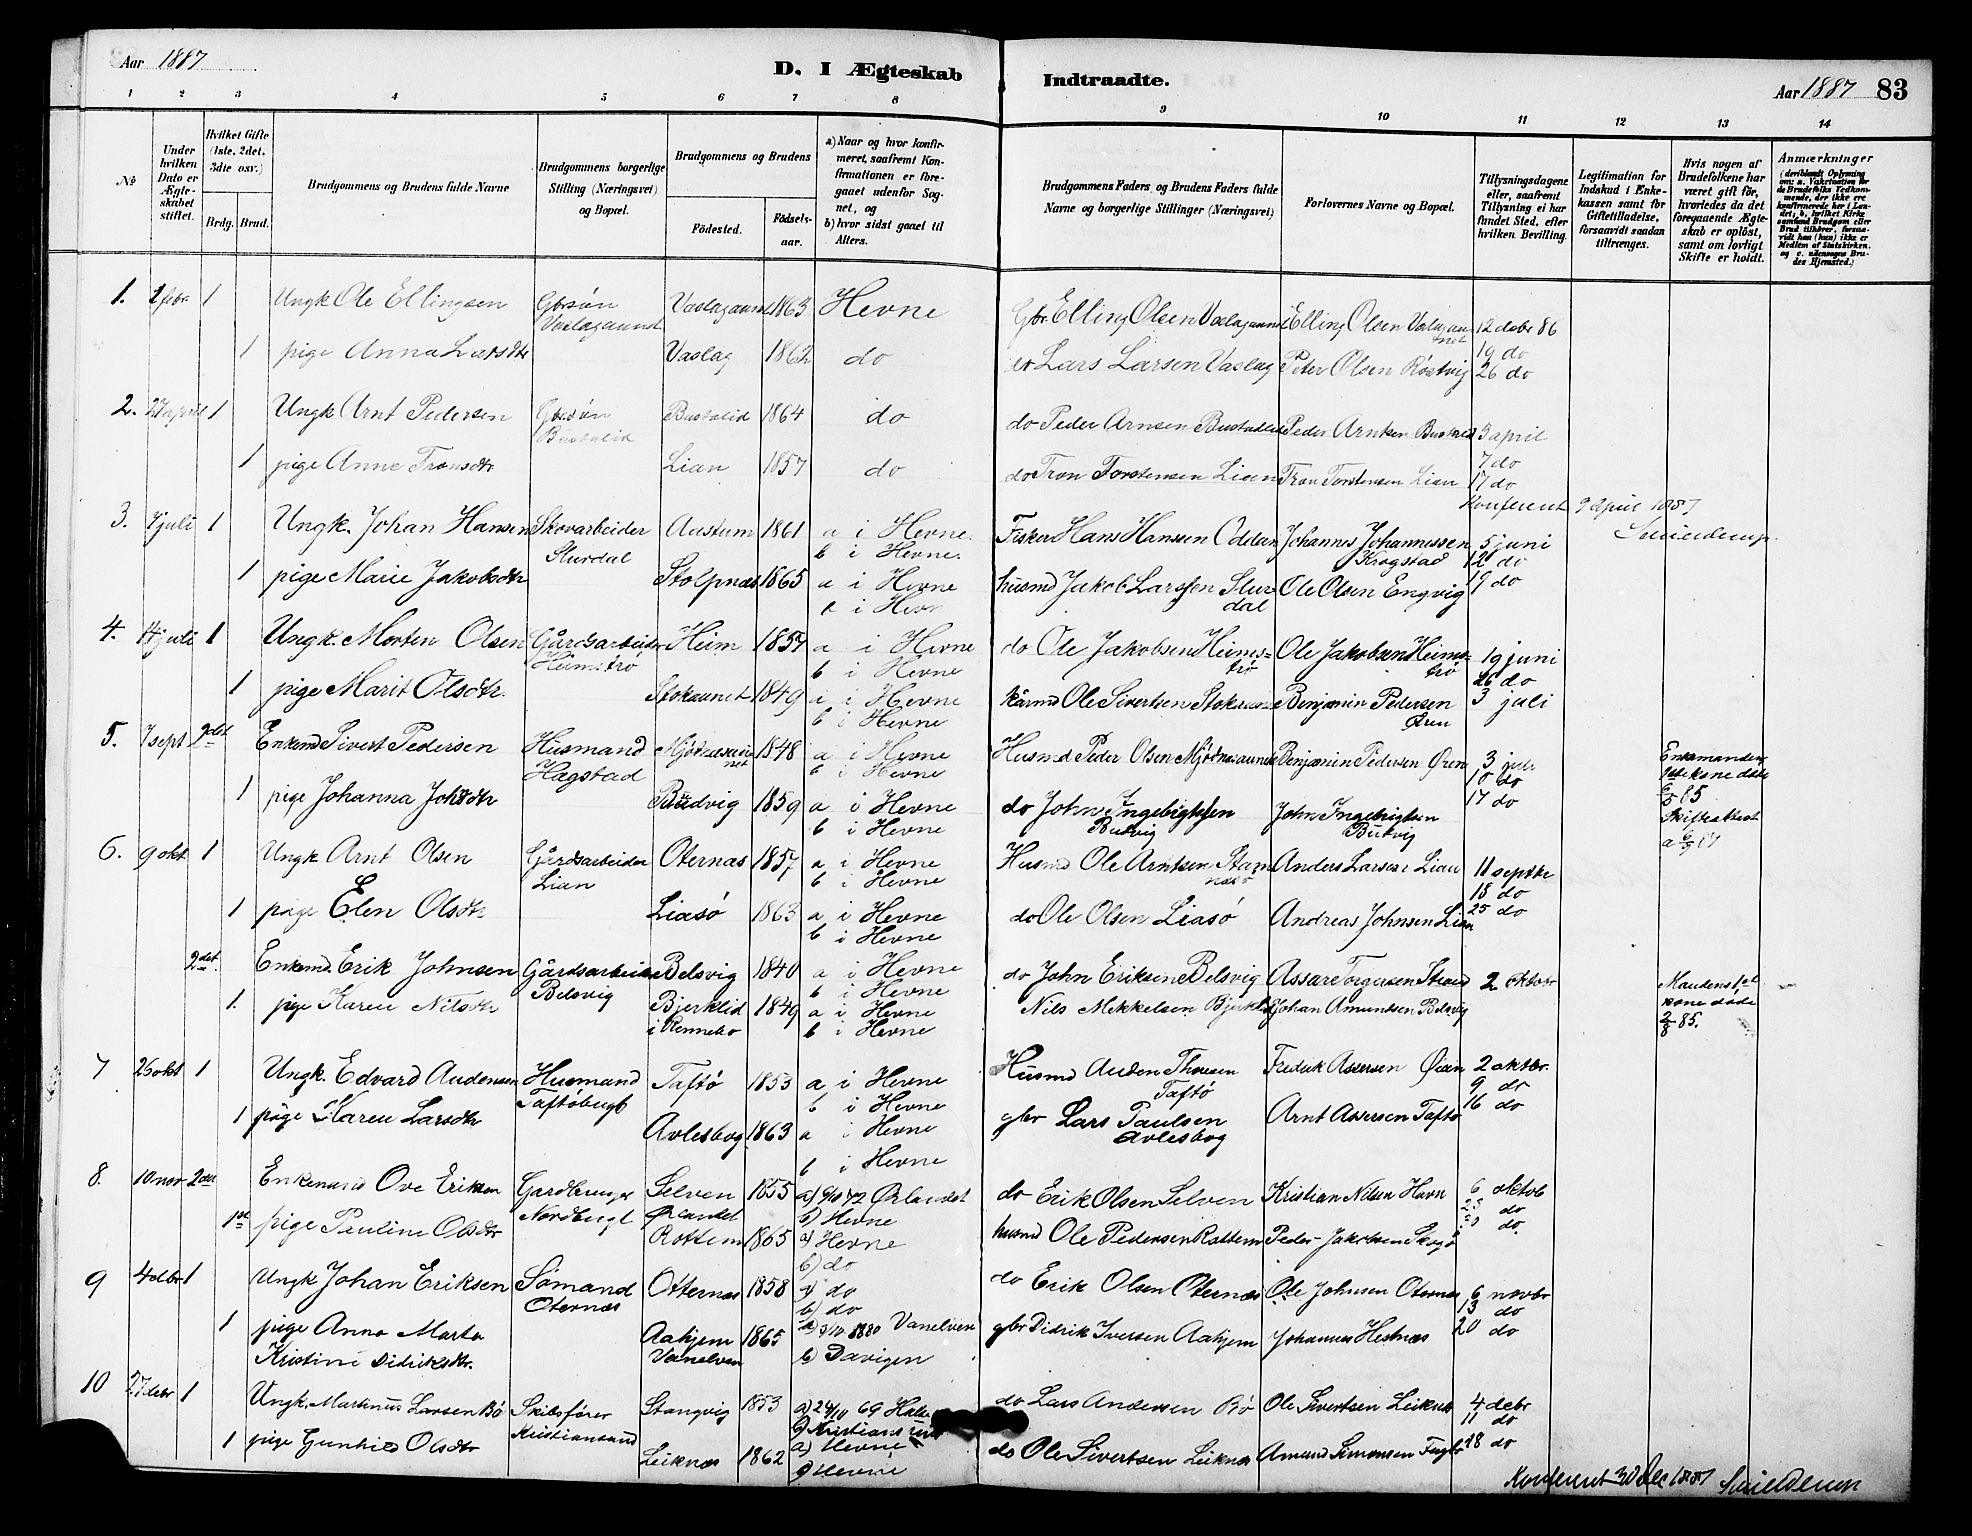 Aar 1887
D. I Ægteskab
Indtraadte.
Aar 1887 83
1 2 3 4 5 6 7 8 9 10 11 12 13 14
No
Under hvilken Dato er Ægteskabet stiftet.
Hvilket Gifte (1ste, 2det, 3die osv.)
Brdg. Brud.
Brudgommens og Brudens fulde Navne
Brudgommens borgerlige Stilling (Næringsvei) og Bopæl.
Brudgommens og Brudens
Fødested.
Fødselsaar.
a) Naar og hvor konfirmeret, saafremt Konfirmationen er foregaaet udenfor Sognet, og
b) hvor sidst gaaet til Alters.
Brudgommens Faders og Brudens Faders fulde Navne og borgerlige Stillinger (Næringsvei)
Forlovernes Navne og Bopæl.
Tillysningsdagene eller, saafremt Tillysning ei har fundet Sted, efter hvilken Bevilling.
Legitimation for Indskud i Enkekassen samt for Giftetilladelse, forsaavidt saadan tiltrænges.
Hvis nogen af Brudefolkene har været gift før, hvorledes da det foregaaende Ægteskab er opløst, samt om lovligt Skifte er holdt.
Anmærkninger
1. 2 febr. 1 Ungk Ole Ellingsen Gbrsøn Vaslagaunet 1863 Hevne Gbr Elling Olsen Vaslagaunet Elling Olsen Vaslagau 12 debr 86
Vaslagaunet net 19 do
1 pige Anna Larsdtr Vaslag 1862 do Lars Larsen Vaslag Peter Olsen Røstvig 26 do
2. 27 april 1 Ungk Arnt Pedersen Gbrsøn Bustalid 1864 do do Peder Arnsen Bustalid Peder Arntsen 3 april
Bustalid 7 do
1 pige Anne Tronsdtr Lian 1857 do do Tron Torstensen Lian Tron Torstensen Lian 17 do
Konferert 9 april 1887
3. juli 1 Ungk. Johan Hansen Skovarbeider Aastum 1861 a i Hevne. Fisker Hans Hansen Oddan Johannes Johannessen 5 juni
Slurdal b i Hevne. Krogstad 12 do
1 pige Marie Jakobsdtr Stolpnæs 1865 a i Hevne husmd Jakob Larssen Slur Ole Olsen Engvig 19 do
b i Hevn dal
4. juli 1 Ungk. Morten Olsen Gårdsarbeider Heim 1857 a i Hevne do Ole Jakobsen Heims- Ole Jakobsen Heims- 19 juni
Heimstrø b i Hevne trø trø 26 do
1 pige Marit Olsdtr. Stokaunet 1849 a i Hevne kårmd Ole Sivertsen Benjamin Pedersen 3 juli
b i Hevne Øren
5. 7 sept 2det Enkemd Sivert Pedersen Husmand 1848 a i Hevne Husmd Peder Olsen Benjamin Pedersen Øren 3 Enkemandens
Hagstad b i Hevne 10 do 1ste kone døde
1 pige Johanna Johsdtr 1859 a i Hevne do John Ingebrigtsen John Ingebrigtsen 17 do 85
b i Hevne Skifteattest
6. 9 okt 1 Ungk Arnt Olsen Gårdsarbeider Oternæs 1857 a i Hevne Husmd Ole Arntsen Anders Larsen Lian 11 septbr
Lian b i Hevne 18 do
1 pige Elen Olsdtr Liasø 1863 a i Hevne do Ole Olsen Liasø Andreas Johnsen Lian 25 do
b i Hevne
2det Enkemd. Erik Johnsen Gårdsarbeider Belsvig 1840 a i Hevne do John Eriksen Belsvig Assar Torgersen 2 oktobr Mandens 1st
Belsvig b i Hevne kone døde
1. pige Karen Nilsdtr Bjerklid 1849 a i Hevne Nils Mikkelsen Bjerklid Johan Amundsen Belsvig 2/8 85.
i Rennebo b i Hevne
7 26 okt 1 Ungk. Edvard Audensen Husmand Taftø 1853 a i Hevne Husmd Auden Thoresen Fredrik Assersen Øian 2 oktbr.
b i Hevne Taftø 9 do
1 pige Karen Larsdtr Avlesbog 1863 a i Hevne gbr Lars Paulsen Arnt Assersen Taftø 16 do
b i Hevne Avlesbog
8. 10 nov 2det Enkemand Ove Eriksen Gardbruger Selven 1855 a) 9/10 72 Ørlandet do Erik Olsen Selven Kristian Nilsen Havn 6 oktob
Ørlandet b) Hevne do
1st pige Pauline Olsdtr Rottem 1865 a) Hevne husmd Ole Pedersen Rottem Peder Jakobsen do
b) do
9 4 debr 1 Ungk Johan Eriksen Sømand Otternæs 1858 a) do do Erik Olsen Oternæs Ole Johnsen Oternæs 6 novbr
Oternæs b) do 13 do
1 pige Anna Marta Aahjem 1865 a) 3/10 1880 Vanelven gbr Didrik Iversen Aahjem Johannes Hestnæs 20 do
Kristine Didriksdtr. Vanelven b) Davigen
10 27 debr 1 Ungk. Martinus Larsen Bø Skibsfører Stangvig 1853 a) 69 do Lars Andersen Bø Ole Sivertsen Leiknæs 4 debr
Kristiansund b) Kristiansund 11 do
1 pige Gunhild Olsdtr Leiknæs 1862 a) Hevne do Ole Sivertsen Leiknæs Amund Simonsen 18 do
b) Hevne
Konferert 30 dec 1887